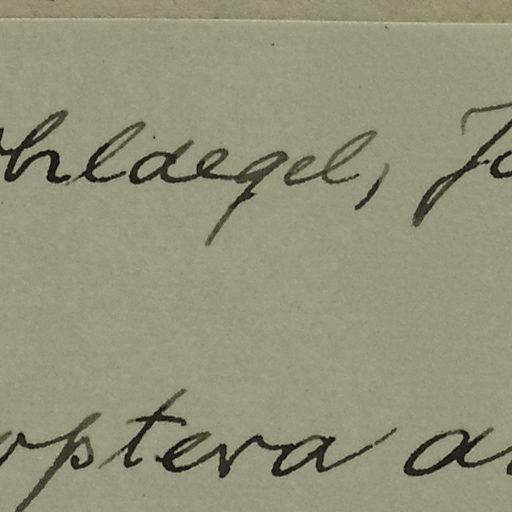 ohldegel, Jo
optera a